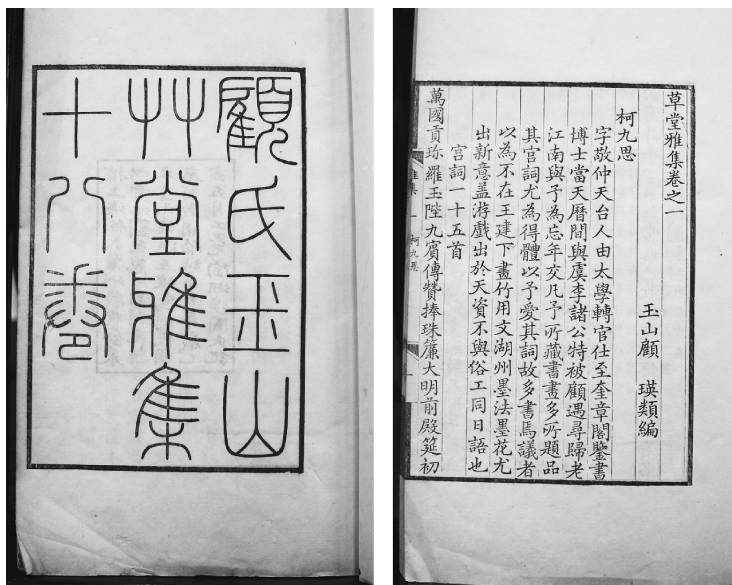 顧氏玉山
艸堂雅集
十八卷
草堂雅集卷之一
玉山顧　瑛類編
柯九思
字敬仲天台人由太學轉官仕至奎章閣鑒書
博士當天曆間與虞李諸公特被顧遇尋歸老
江南與予為忘年交凡予所藏書畫多所題品
其宮詞尤為得體以予愛其詞故多書焉議者
以為不在王建下畫竹用文湖州墨法墨花尤
出新意盖游戲出於天資不與俗工同日語也
宮詞一十五首
萬國貢珎羅玉陛九賓傳贊捧珠簾大明前殿筵初
雅集
一
柯九思